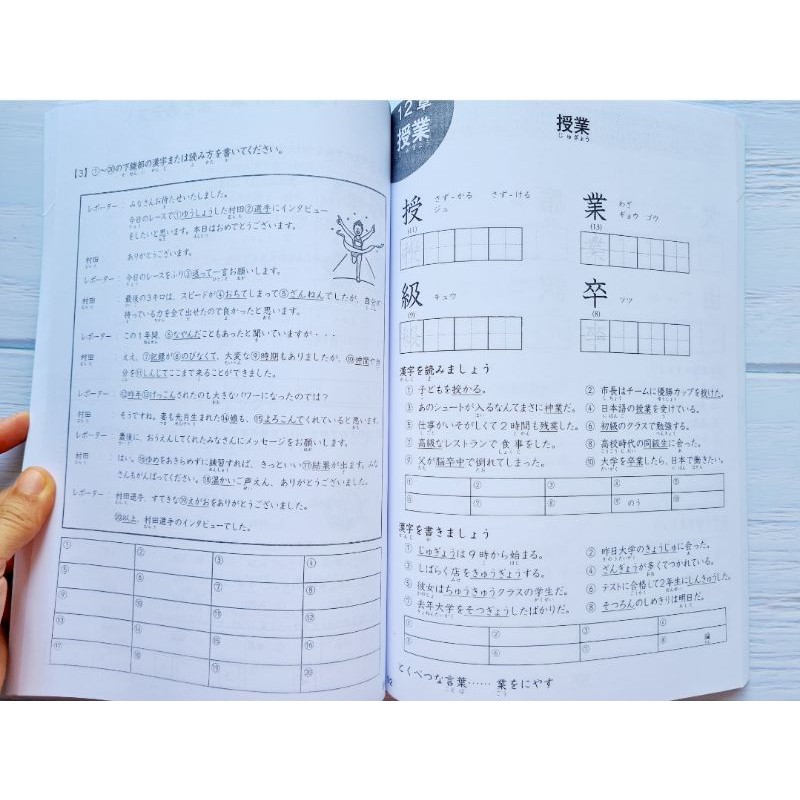 【3】①～⑳の下線部の漢字または読み方を書いてください。
レポーター： みなさんお待たせいたしました。
今日のレースで①ゆうしょうした村田②選手にインタビュー
をしたいと思います。本日はおめでとうございます。
村田 ありがとうございます。
レポーター： 今日のレースをふり③返って一言お願いします。
村田 最後の3キロは、スピードが④おちてしまって⑤ざんねんでしたが、自分
持っている力を全て出せたので良かったと思います。
レポーター： この1年間、⑥なやんだこともあったと聞いていますが・・・
村田 ええ、⑦記録が⑧のびなくて、大変な⑨時期もありましたが、⑩仲間や自
分を⑪しんじてここまで来ることができました。
レポーター： ⑫昨年⑬けっこんされたのも大きなパワーになったのでは？
村田 そうですね。妻も先月生まれた⑭娘も、⑮よろこんでくれていると思います。
レポーター： 最後に、おうえんしてくれたみなさんにメッセージをお願いします。
村田 はい。⑯ゆめをあきらめずに練習すれば、きっといい⑰結果が出ます。みな
さんもがんばってください。⑱温かいご声えん、ありがとうございました。
レポーター： 村田選手、すてきな⑲えがおをありがとうございました。
⑳以上、村田選手のインタビューでした。
① ② ③ ④
⑤ ⑥ ⑦ ⑧
⑨ ⑩ ⑪ ⑫
⑬ ⑭ ⑮ ⑯
⑰ ⑱ ⑲ ⑳
12章
授業
授業
じゅぎょう
授 さずーかる さずーける
ジュ
(11)
業 わざ
ギョウ ゴウ
(13)
級 キュウ
(9)
卒 ソツ
(8)
漢字を読みましょう
① 子どもを授かる。
② 市長はチームに優勝カップを授けた。
③ あのシュートが入るなんてまさに神業だ。
④ 日本語の授業を受けている。
⑤ 仕事がいそがしくて2時間も残業した。
⑥ 初級のクラスで勉強する。
⑦ 高級なレストランで食事をした。
⑧ 高校時代の同級生に会った。
⑨ 父が脳卒中で倒れてしまった。
⑩ 大学を卒業したら、日本で働きたい。
① ② ③ ④ ⑤
⑥ ⑦ ⑧ ⑨ のう ⑩
漢字を書きましょう
① じゅぎょうは9時から始まる。
② 昨日大学のきょうじゅに会った。
③ しばらく店をきゅうぎょうする。
④ ざんぎょうが多くてつかれている。
⑤ 彼女はちゅうきゅうクラスの学生だ。
⑥ テストに合格して2年生にしんきゅうした。
⑦ 去年大学をそつぎょうしたばかりだ。
⑧ そつろんのしめきりは明日だ。
① ② ③ ④
⑤ ⑥ ⑦ ⑧ 論
とくべつな言葉…… 業をにやす